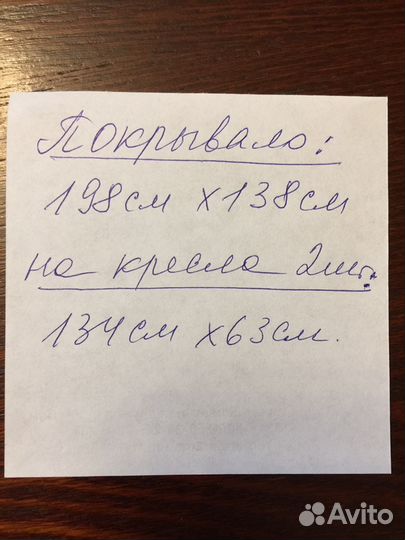 Покрывало:
198см х138см
на кресла 2шт.
134см х63см.
Avito